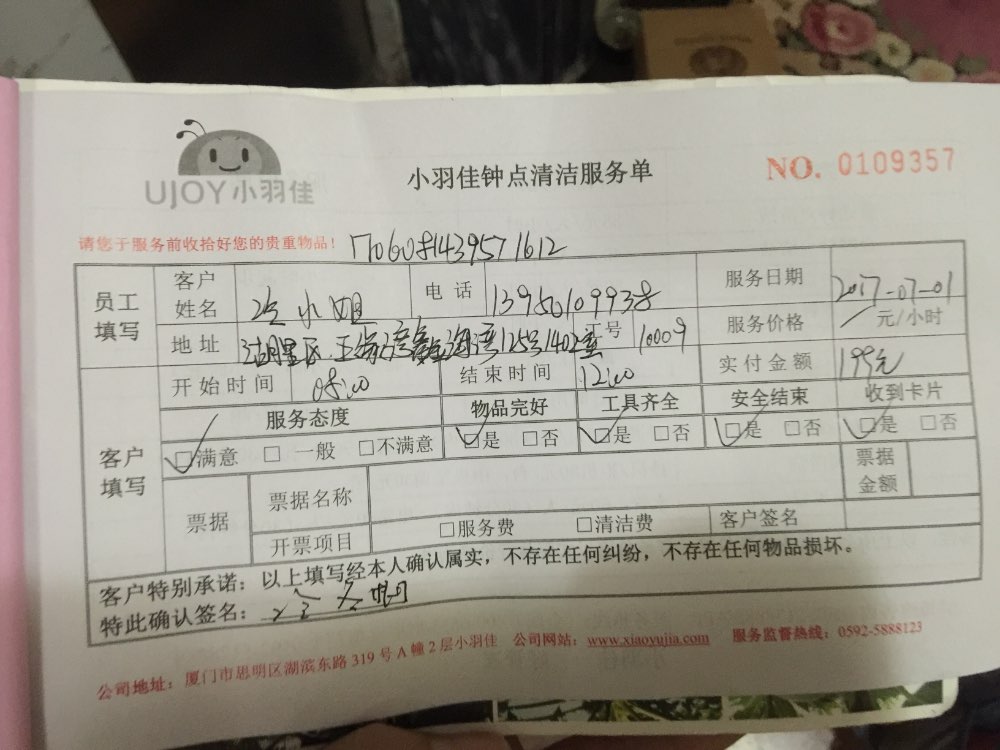 UJOY小羽佳
小羽佳钟点清洁服务单
NO. 0109357
请您于服务前收拾好您的贵重物品！
员工填写
客户姓名 小姐
电话 13950109938
服务日期 2017-07-01
地址 125号1402室
工号 10009
服务价格 元/小时
客户填写
开始时间 08:00
结束时间 12:00
实付金额 199元
服务态度 物品完好 工具齐全 安全结束 收到卡片
□满意 □一般 □不满意 □是 □否 □是 □否 □是 □否 □是 □否
票据 票据名称 票据金额
开票项目 □服务费 □清洁费 客户签名
客户特别承诺：以上填写经本人确认属实，不存在任何纠纷，不存在任何物品损坏。
特此确认签名：
公司地址：厦门市思明区湖滨东路319号A幢2层小羽佳 公司网站：www.xiaoyujia.com 服务监督热线：0592-5888123